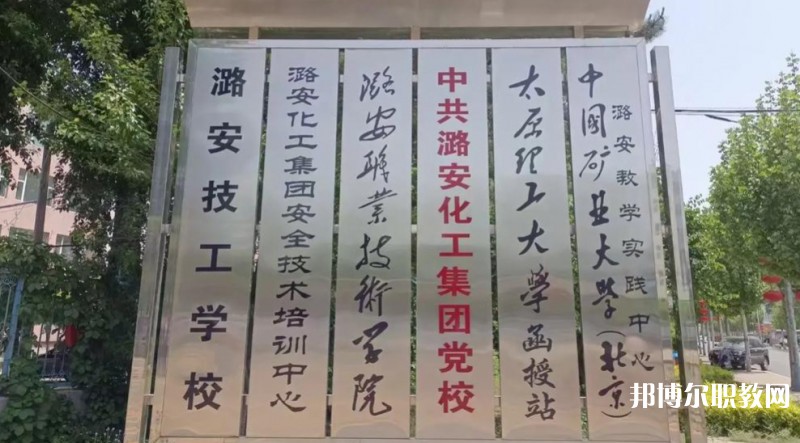 潞安技工学校
潞安化工集团安全技术培训中心
潞安职业技術学院
中共潞安化工集团党校
太原理工大学函授站
中国矿业大学(北京)
潞安教学实践中心
邦博尔职教网